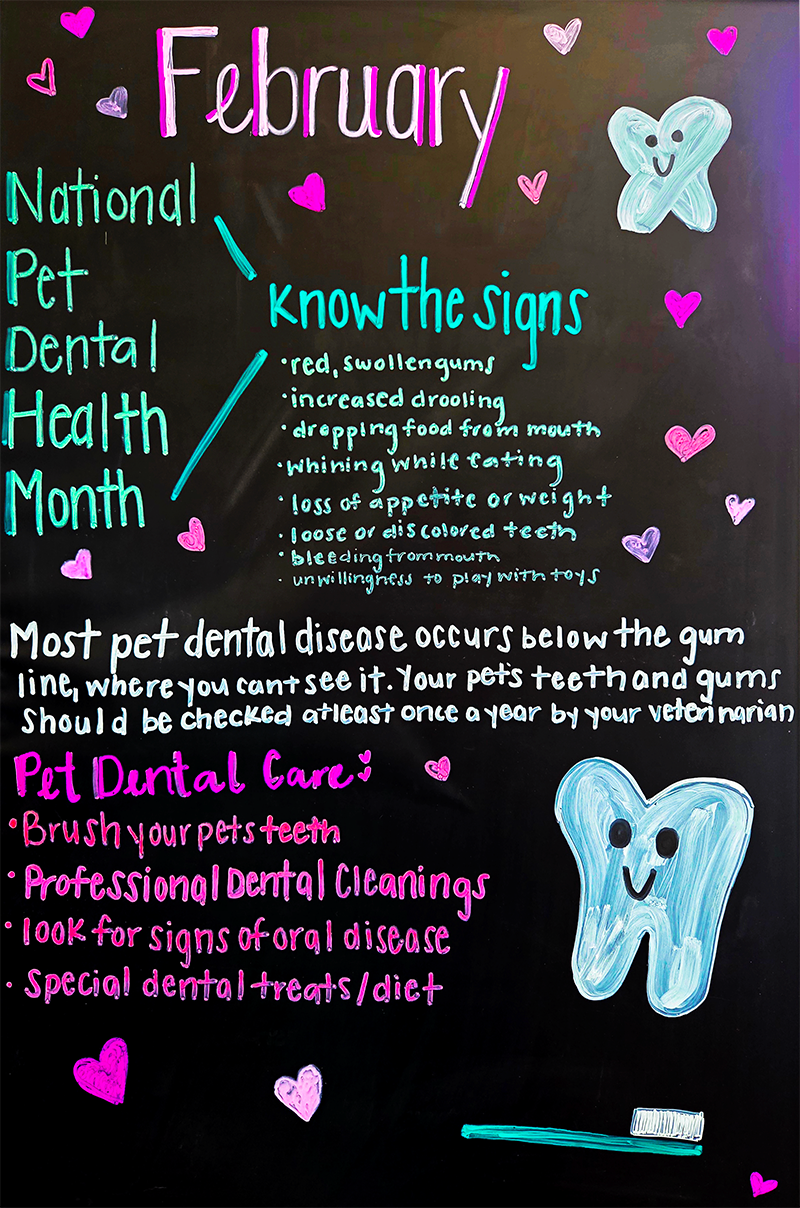 February
National
Pet
Dental
Health
Month
Know the signs
• red, swollen gums
• increased drooling
• dropping food from mouth
• whining while eating
• loss of appetite or weight
• loose or discolored teeth
• bleeding from mouth
• unwillingness to play with toys
Most pet dental disease occurs below the gum
line, where you cant see it. Your pet's teeth and gums
should be checked atleast once a year by your veterinarian
Pet Dental Care
• Brush your pets teeth
• Professional Dental Cleanings
• look for signs of oral disease
• Special dental treats/diet